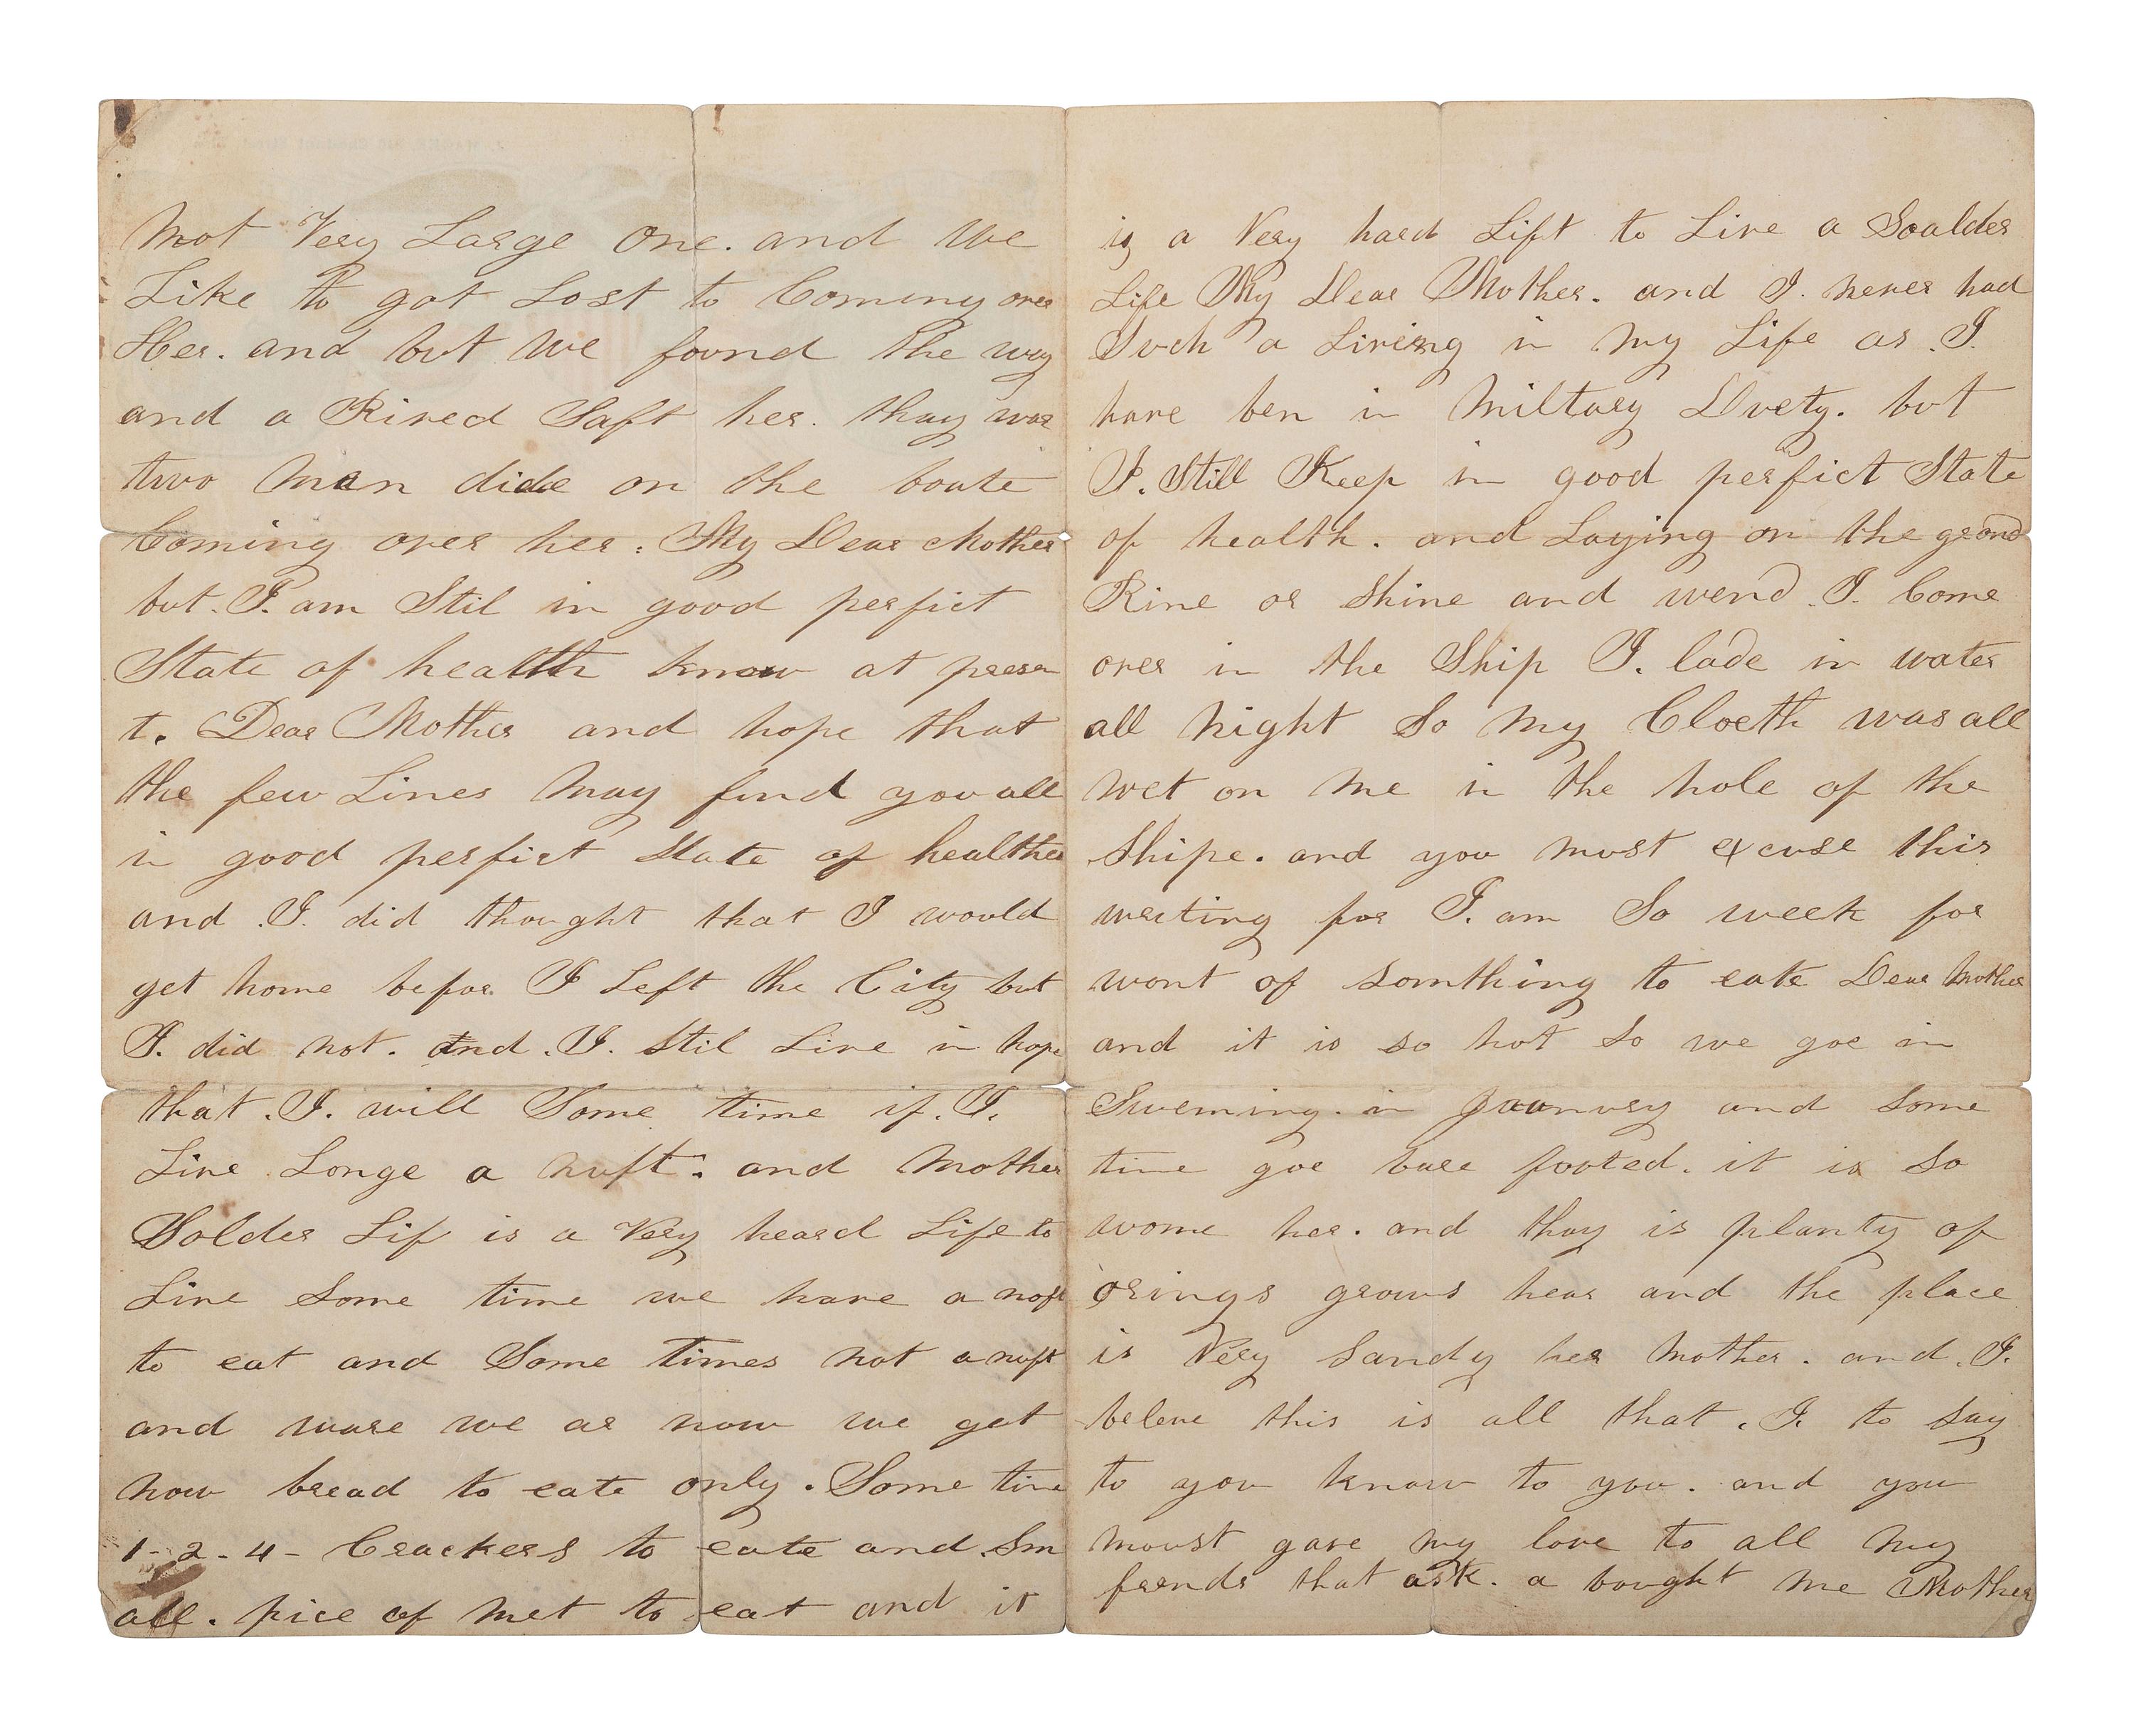 not Very Large One. and We
Like to got Lost to Coming over
Her. and but We found the way
and a Rived Saft her. thay was
two Man dide on the boate
Coming over her: My Dear Mother
but. I. am Stil in good perfict
State of health know at presen
t. Dear Mother and hope that
the few Lines May find you all
in good perfict State of healthe
and I. did thought that I would
get home befor I Left the City but
I. did not. and. I. Stil Live in hope
that. I. will Some time if. I.
Live Longe a nuft. and Mother
Solder Lif is a Very heard Life to
Live Some time we have a noft
to eat and Some times not a nuft
and ware we ar now we get
now bread to eate only. Some time
1-2-4- Crackers to eate and Sm
all. pice of met to eat and it
is a Very hard Lift to Live a Soalder
Life My Dear Mother. and I. never had
Such a Liveing in My Life as. I.
have ben in Miltary Duety. but
I. Still Keep in good perfict State
of health. and Laying on the grond
Rine or Shine and wend. I. Come
over in the Ship I. lade in water
all night So My Cloeth was all
wet on me in the hole of the
Shipe. and you must excuse this
writing for I. am So week for
wont of Somthing to eate Dear Mother
and it is so hot So we goe in
Sweming. in January and Some
time goe bare footed. it is So
wome her. and thay is planty of
orings grows hear and the place
is Very Sandy her Mother. and. I.
beleve this is all that. I. to Say
to you know to you. and you
moust gave my love to all my
frends that ask. a bought me Mother